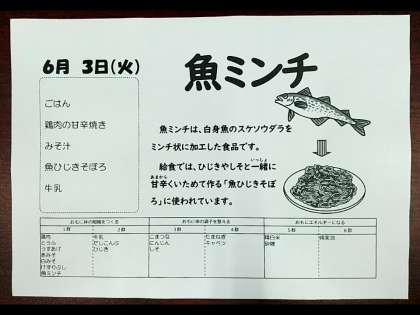 6月 3日(火)
魚ミンチ
ごはん
鶏肉の甘辛焼き
みそ汁
魚ひじきそぼろ
牛乳
魚ミンチは、白身魚のスケソウダラを
ミンチ状に加工した食品です。
いっしょ
給食では、ひじきやしそと一緒に
あまから
甘辛くいためて作る「魚ひじきそぼ
ろ」に使われています。
おもに体の組織をつくる おもに体の調子を整える おもにエネルギーになる
1群 2群 3群 4群 5群 6群
鶏肉 牛乳 こまつな たまねぎ 精白米
とうふ だしこんぶ にんじん キャベツ 砂糖
うすあげ ひじき しそ
赤みそ
白みそ
けずりぶし
魚ミンチ